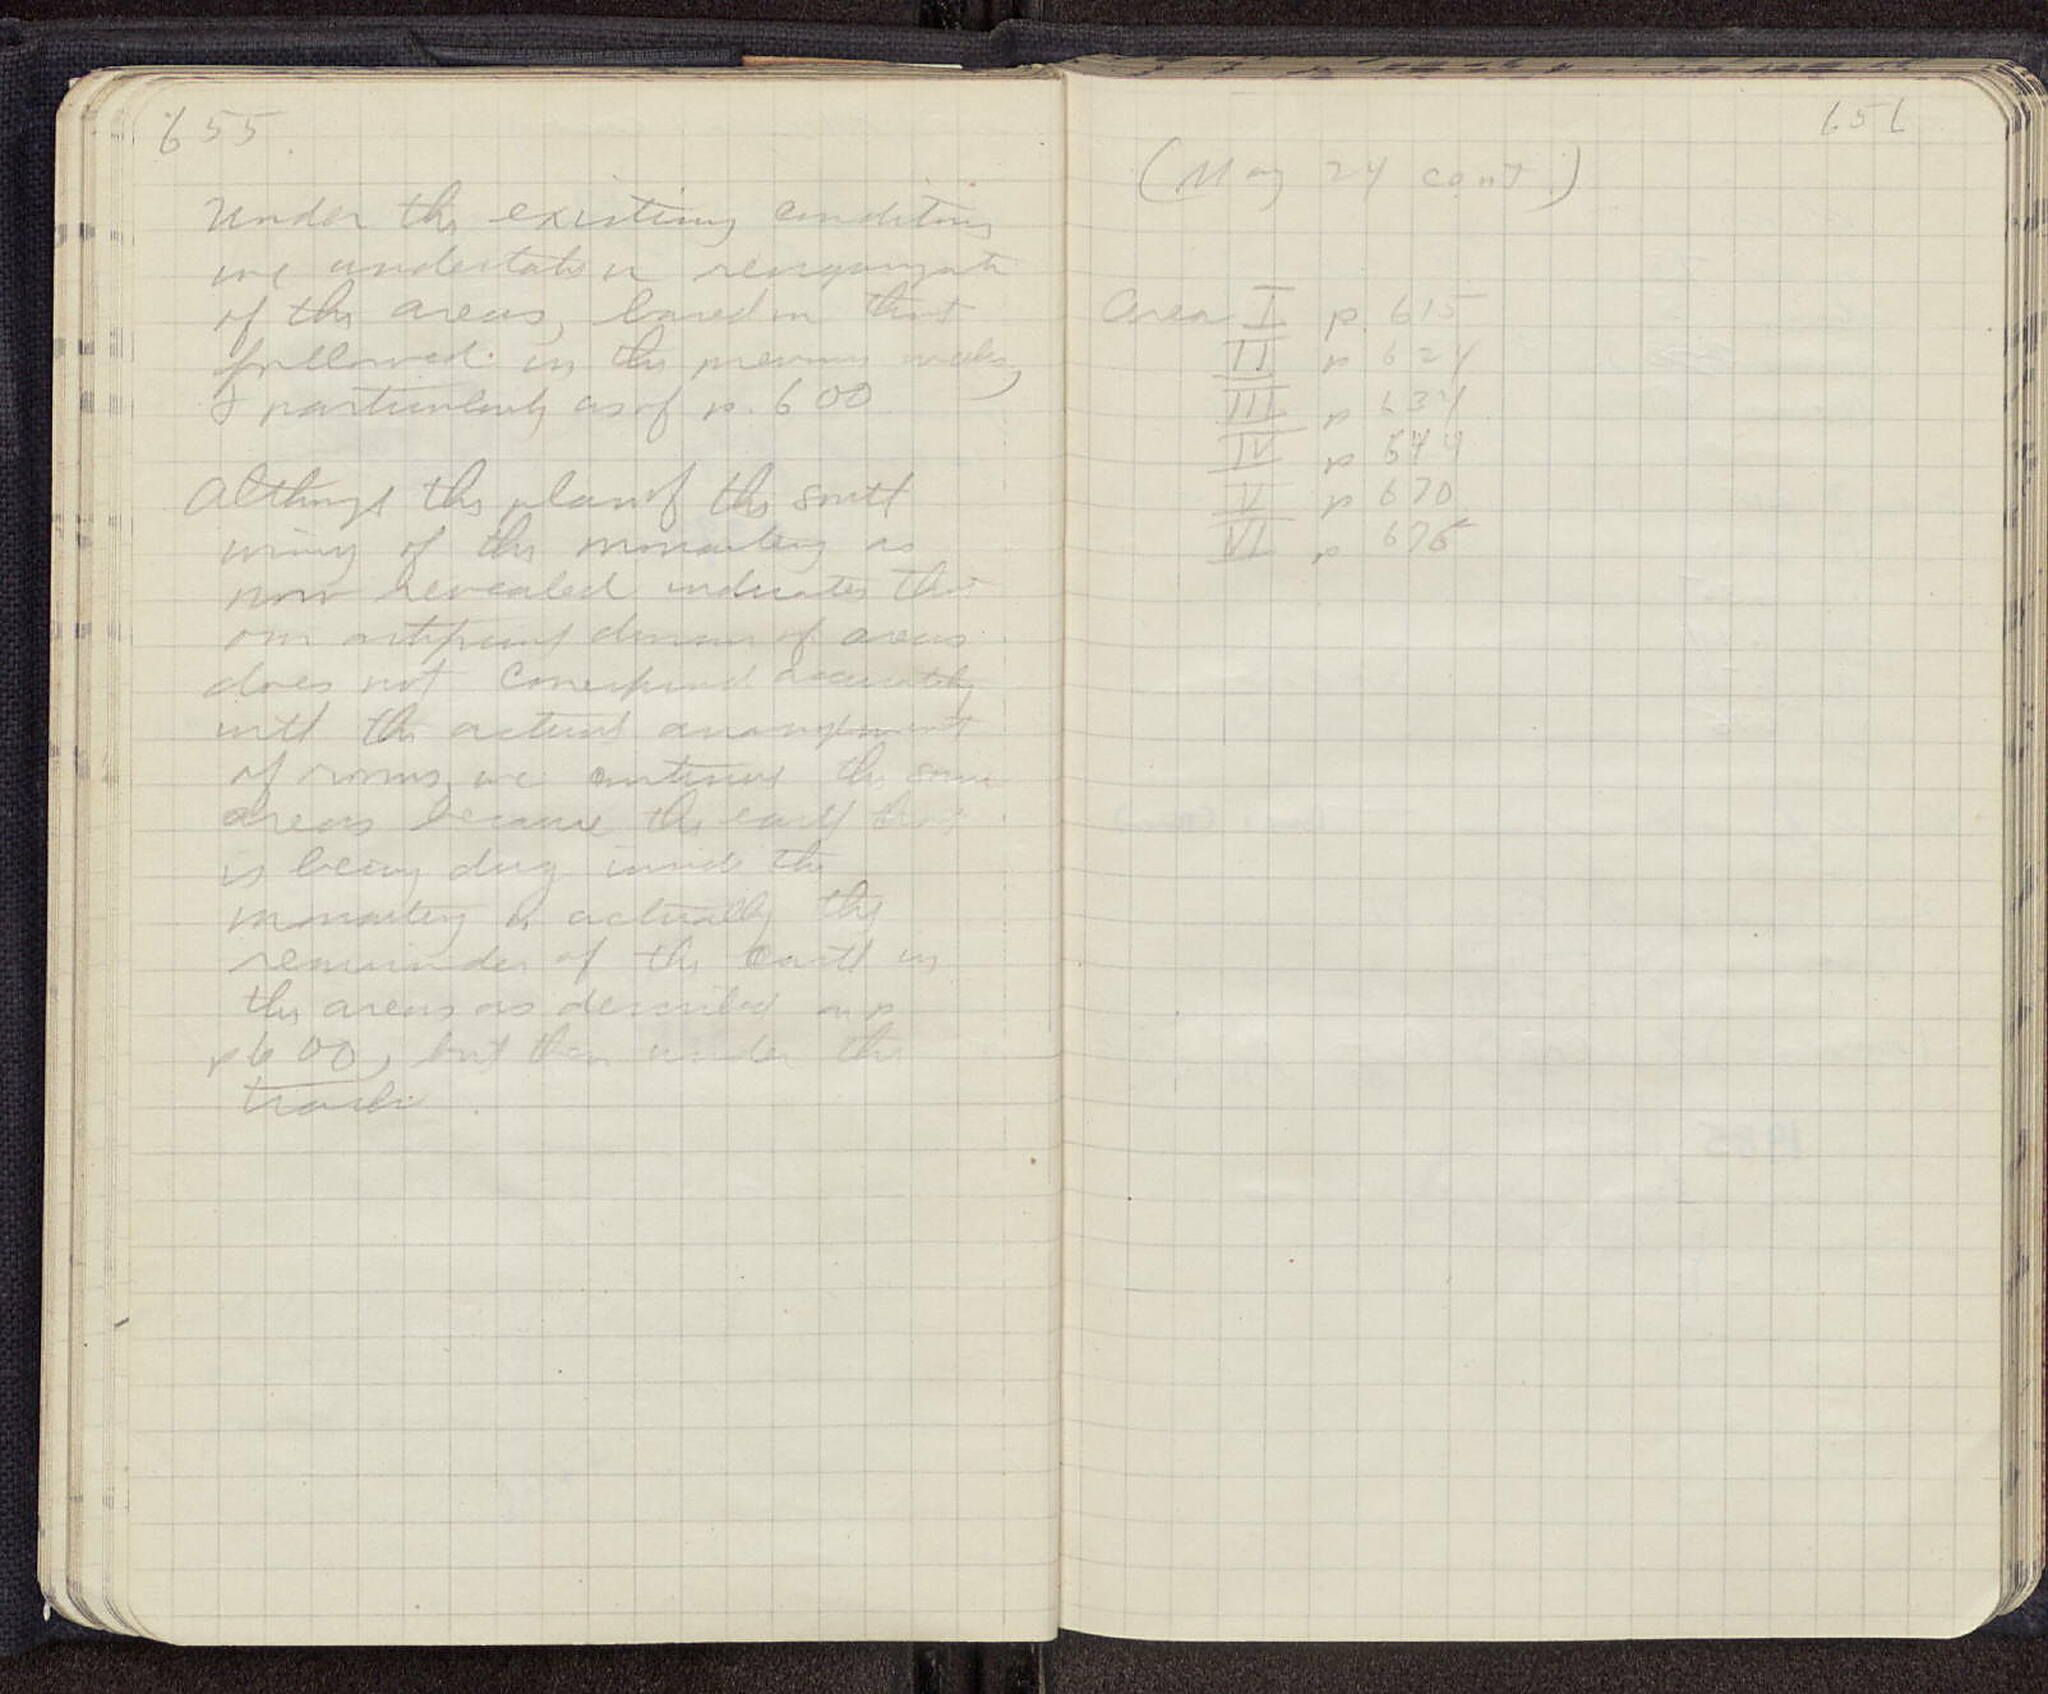 655
Under the existing conditions
we undertake a reorganizati
of the areas, based on that
followed in the previous weeks,
& particularly as of p. 600
Although the plan of the south
wing of the monastery as
now revealed indicates that
our artificial division of areas
does not correspond accurately
with the actual arrangement
of rooms, we continue the same
areas because the earth that
is being dug inside the
monastery is actually the
remainder of the earth in
the areas as described on p
p 600, but then under the
track.
656
(May 24 cont.)
Area I p. 615
II p 624
III p 634
IV p 544
V p 670
VI p 675